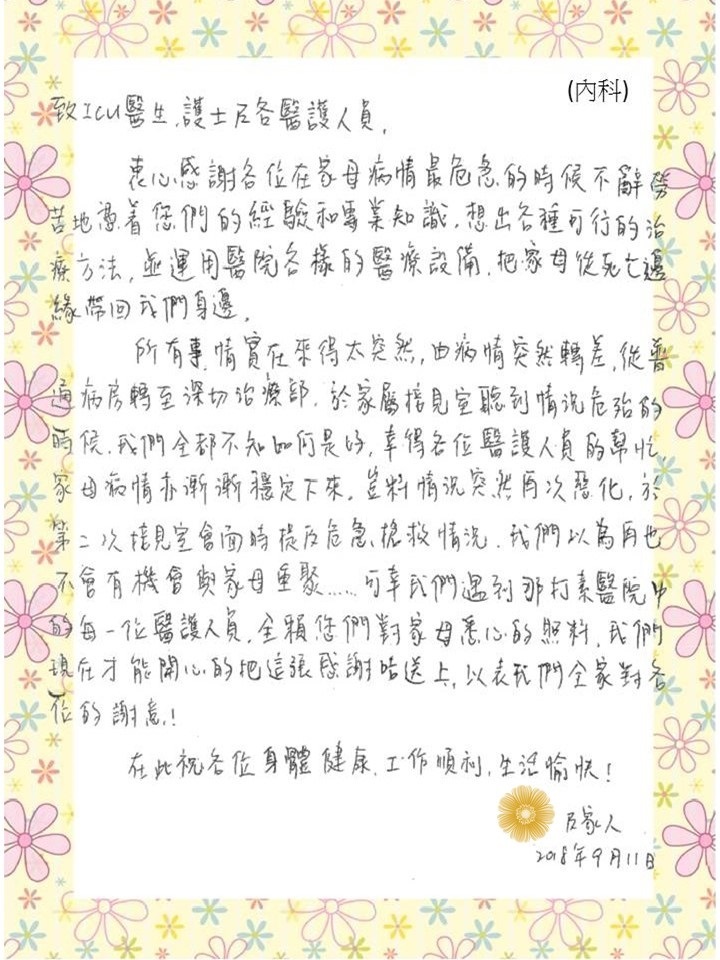 (內科)
致ICU醫生、護士及各醫護人員,
衷心感謝各位在家母病情最危急的時候不辭勞
苦地憑着您們的經驗和專業知識,想出各種可行的治
療方法,並運用醫院各樣的醫療設備,把家母從死亡邊
緣帶回我們身邊。
所有事情實在來得太突然,由病情突然轉差,從普
通病房轉至深切治療部,於家屬接見室聽到情況危殆的
時候,我們全都不知如何是好,幸得各位醫護人員的幫忙,
家母病情亦漸漸穩定下來,豈料情況突然再次惡化,於
第二次接見室會面時提及危急、搶救情況,我們以為再也
不會有機會與家母重聚……可幸我們遇到那打素醫院中
的每一位醫護人員,全賴您們對家母悉心的照料,我們
現在才能開心的把這張感謝咭送上,以表我們全家對各
位的謝意!
在此祝各位身體健康,工作順利,生活愉快!
及家人
2018年9月11日